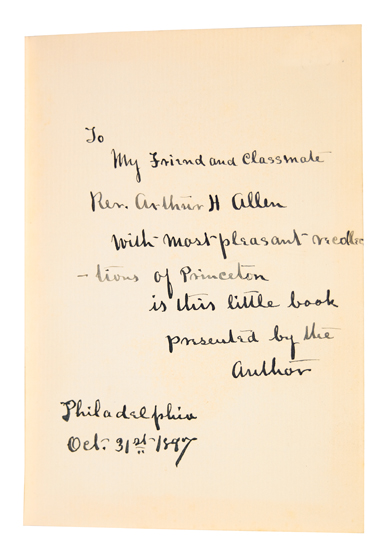 To
My Friend and Classmate
Rev. Arthur H Allen
with most pleasant recollec
-tions of Princeton
is this little book
presented by the
Author
Philadelphia
Oct. 31st 1897